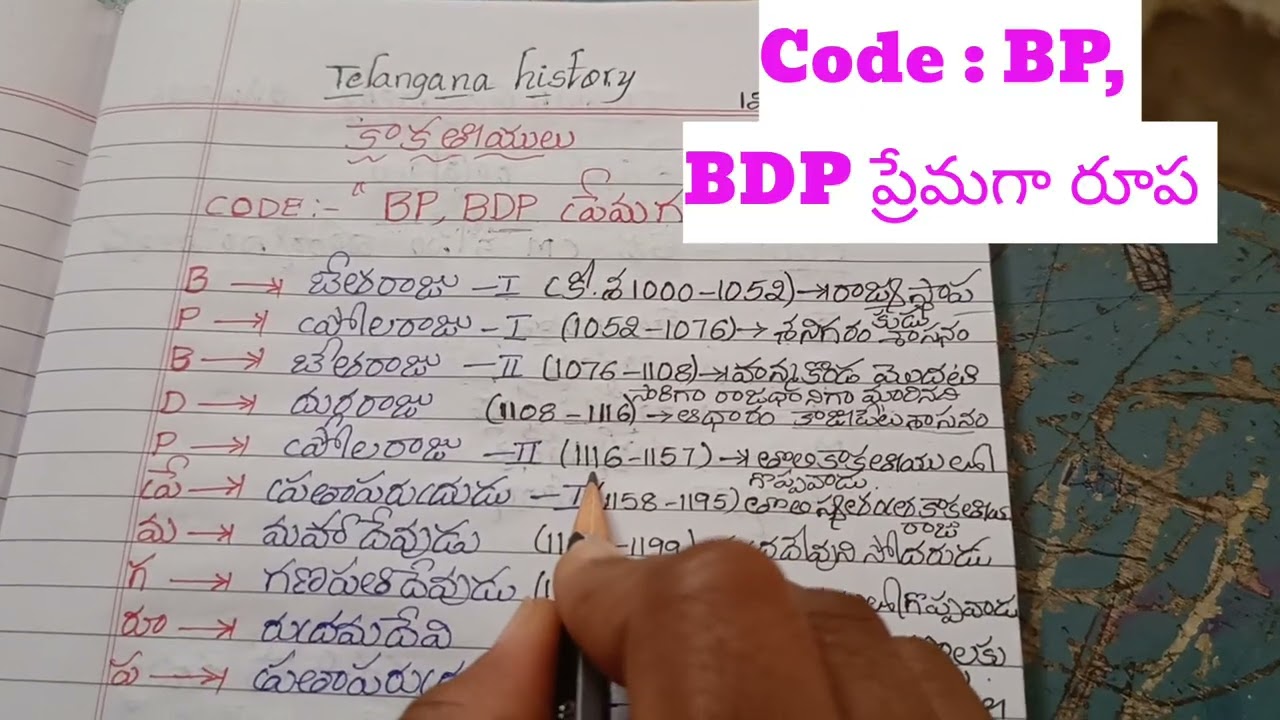 Code : BP,
BDP ప్రేమగా రూప
Telangana history
కాకతీయులు
CODE:- "BP, BDP ప్రేమగ
B → బేతరాజు – I (క్రీ.శ 1000-1052) → రాజ్య స్థాప
కుడు
P → ప్రోలరాజు - I (1052-1076) → శనిగరం శాసనం
B → బేతరాజు – II (1076-1108) → హన్మకొండ మొదటి
సారిగా రాజధానిగా మారినది
D → దుర్గరాజు (1108-1116) → ఆధారం కాజీపేట శాసనం
P → ప్రోలరాజు – II (1116-1157) → తొలి కాకతీయులలో
గొప్పవాడు.
ప్రే → ప్రతాపరుద్రుడు – I (1158-1195) తొలి స్వతంత్ర కాకతీయ
రాజు
మ → మహాదేవుడు -1199) సోదరుడు
గ → గణపతిదేవుడు గొప్పవాడు
రూ → రుద్రమదేవి
ప →